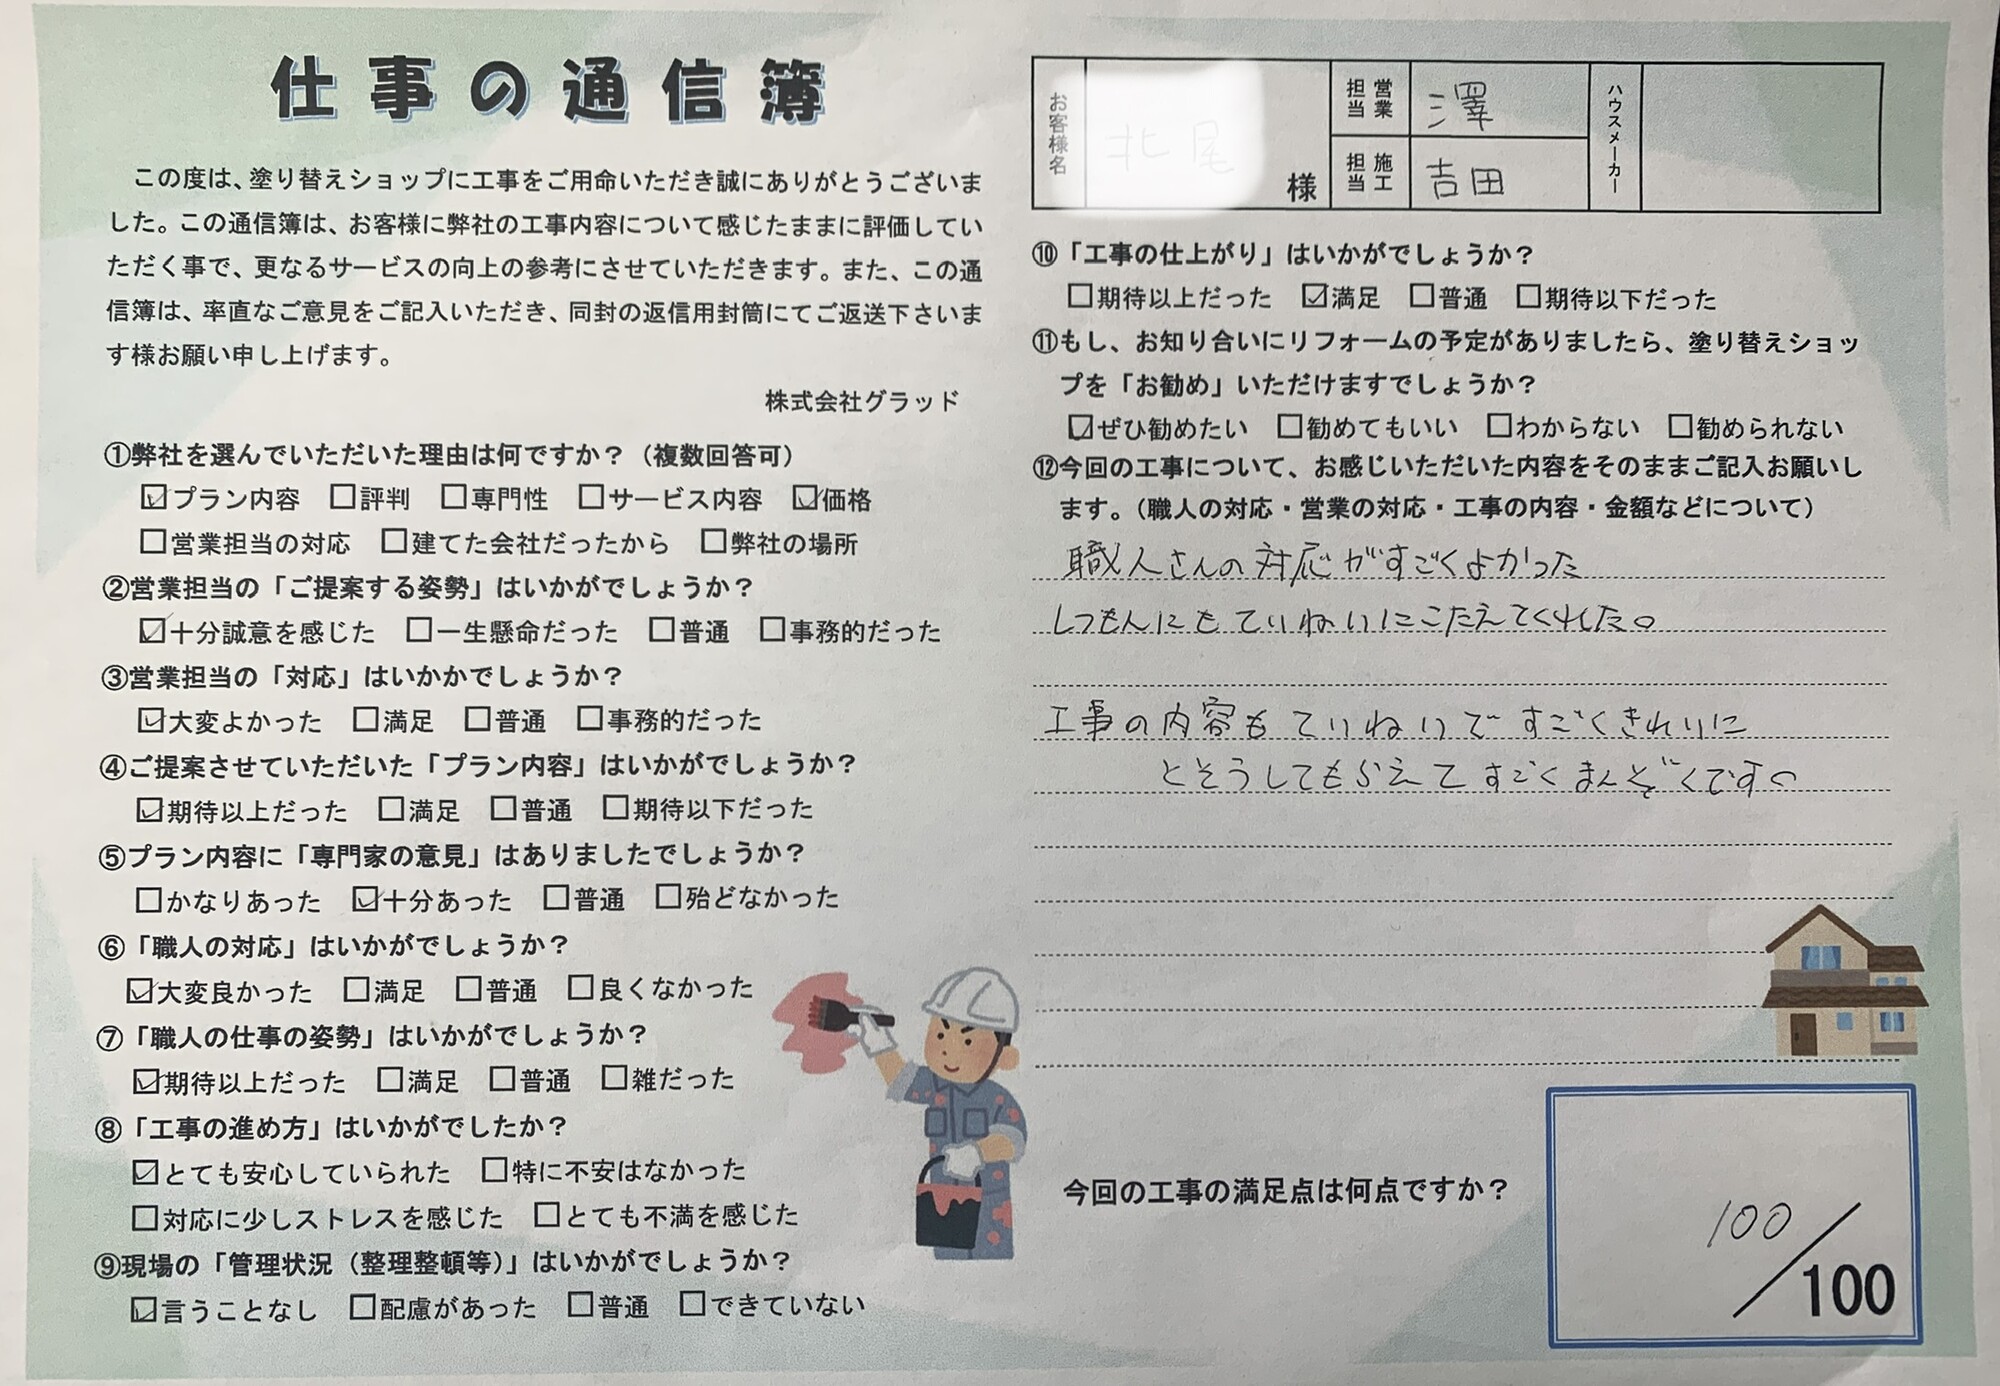 仕事の通信簿
この度は、塗り替えショップに工事をご用命いただき誠にありがとうございま
した。この通信簿は、お客様に弊社の工事内容について感じたままに評価してい
ただく事で、更なるサービスの向上の参考にさせていただきます。また、この通
信簿は、率直なご意見をご記入いただき、同封の返信用封筒にてご返送下さいま
す様お願い申し上げます。
株式会社グラッド
①弊社を選んでいただいた理由は何ですか？（複数回答可）
☑プラン内容 □評判 □専門性 □サービス内容 ☑価格
□営業担当の対応 □建てた会社だったから □弊社の場所
②営業担当の「ご提案する姿勢」はいかがでしょうか？
☑十分誠意を感じた □一生懸命だった □普通 □事務的だった
③営業担当の「対応」はいかかでしょうか？
☑大変よかった □満足 □普通 □事務的だった
④ご提案させていただいた「プラン内容」はいかがでしょうか？
☑期待以上だった □満足 □普通 □期待以下だった
⑤プラン内容に「専門家の意見」はありましたでしょうか？
□かなりあった ☑十分あった □普通 □殆どなかった
⑥「職人の対応」はいかがでしょうか？
☑大変良かった □満足 □普通 □良くなかった
⑦「職人の仕事の姿勢」はいかがでしょうか？
☑期待以上だった □満足 □普通 □雑だった
⑧「工事の進め方」はいかがでしたか？
☑とても安心していられた □特に不安はなかった
□対応に少しストレスを感じた □とても不満を感じた
⑨現場の「管理状況（整理整頓等）」はいかがでしょうか？
☑言うことなし □配慮があった □普通 □できていない
お客様名 様 営業担当 澤 ハウスメーカー
施工担当 吉田
⑩「工事の仕上がり」はいかがでしょうか？
□期待以上だった ☑満足 □普通 □期待以下だった
⑪もし、お知り合いにリフォームの予定がありましたら、塗り替えショッ
プを「お勧め」いただけますでしょうか？
☑ぜひ勧めたい □勧めてもいい □わからない □勧められない
⑫今回の工事について、お感じいただいた内容をそのままご記入お願いし
ます。（職人の対応・営業の対応・工事の内容・金額などについて）
職人さんの対応がすごくよかった
しつもんにもていねいにこたえてくれた。
工事の内容もていねいですごくきれいに
とそうしてもらえてすごくまんぞくです。
今回の工事の満足点は何点ですか？
100／100